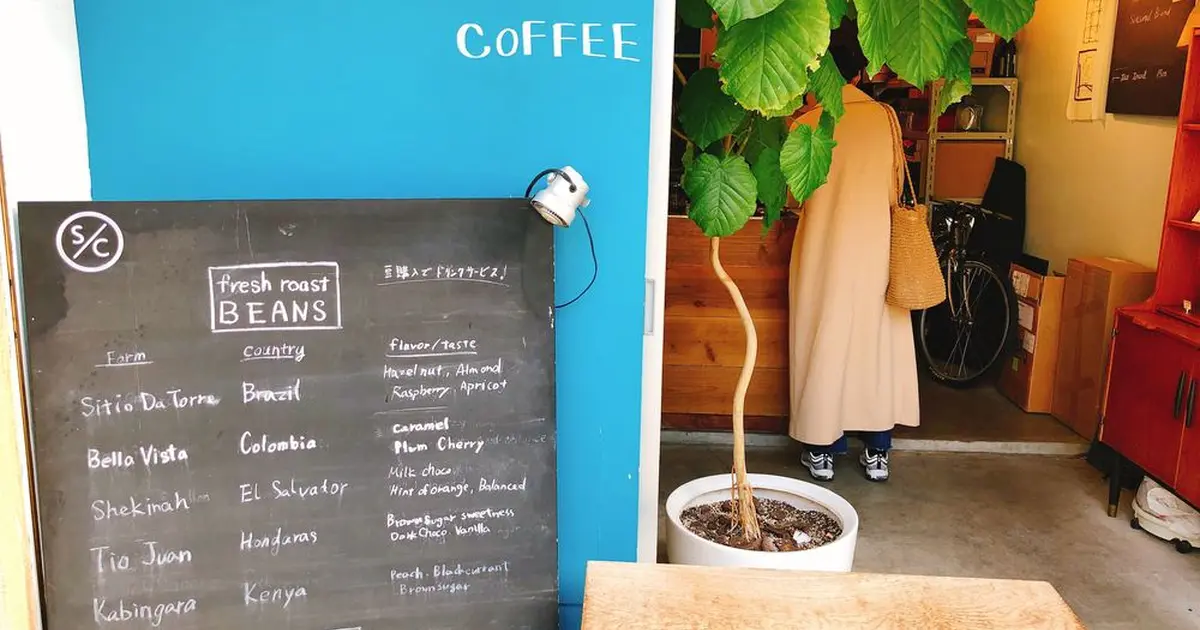 COFFEE
S/C
fresh roast
BEANS
豆購入でドリンクサービス!
Farm country flavor/taste
Sitio Da Torre Brazil Hazelnut, Almond
Raspberry, Apricot
Bella Vista Colombia caramel
Plum Cherry
Shekinah El Salvador Milk choco
Hint of orange, Balanced
Tio Juan Honduras Brown Sugar sweetness
Dark Choco Vanilla
Kabingara Kenya Peach. Blackcurrant
Brown sugar